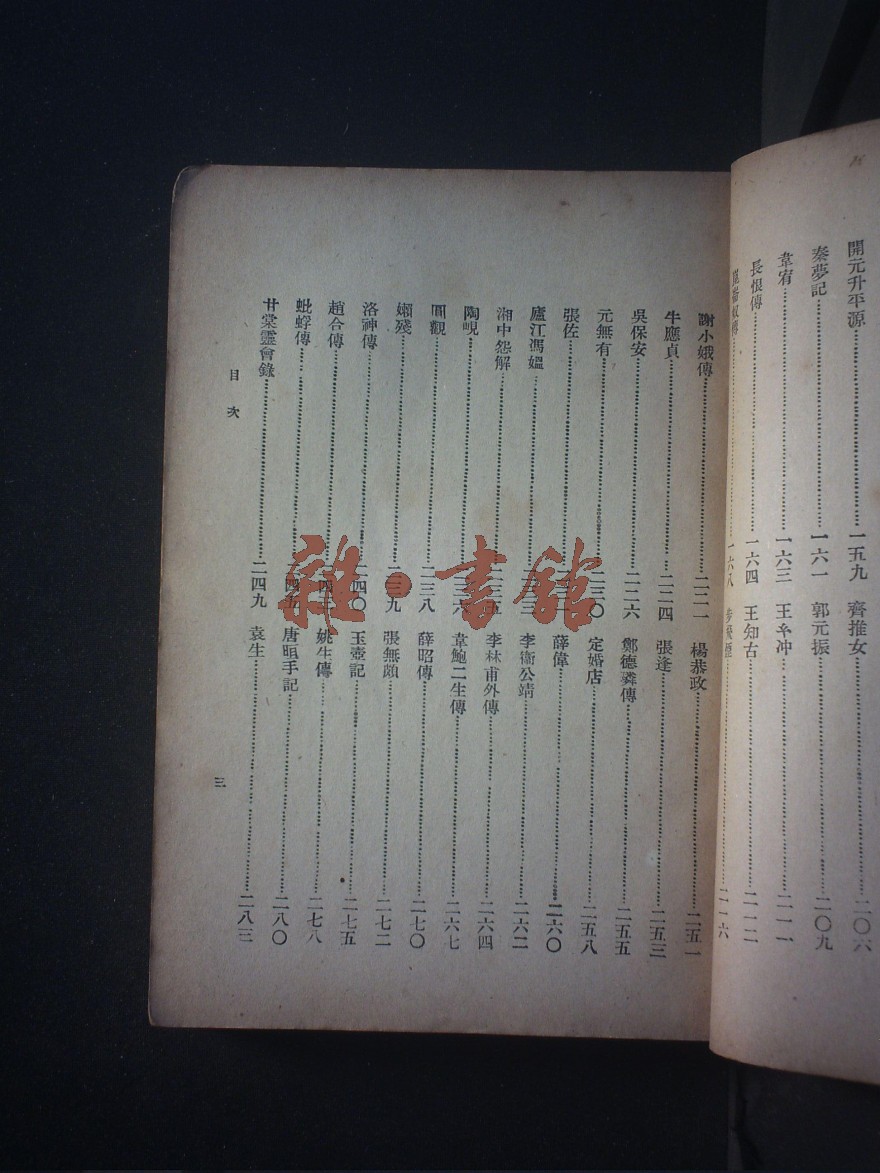 開元升平源……一五九
秦夢記……一六一
韋宥……一六三
長恨傳……一六四
一六八
齊推女……二〇六
郭元振……二〇九
王冲……二一一
王知古……二一二
二一六
謝小娥傳……二二一
牛應貞……二二四
吳保安……二二六
元無有……二三〇
張佐
廬江馮媼
湘中怨解
陶峴
圓觀……二三八
嬾殘……二三九
洛神傳……二四〇
趙合傳
蚍蜉傳……二四五
甘棠靈會錄……二四九
楊恭政……二五一
張逢……二五三
鄭德璘傳……二五五
定婚店……二五八
薛偉……二六〇
李衞公靖……二六二
李林甫外傳……二六四
韋鮑二生傳……二六七
薛昭傳……二七〇
張無頗……二七二
玉壺記……二七五
姚生傳……二七八
唐晅手記……二八〇
袁生……二八三
目次
三
雜·書館